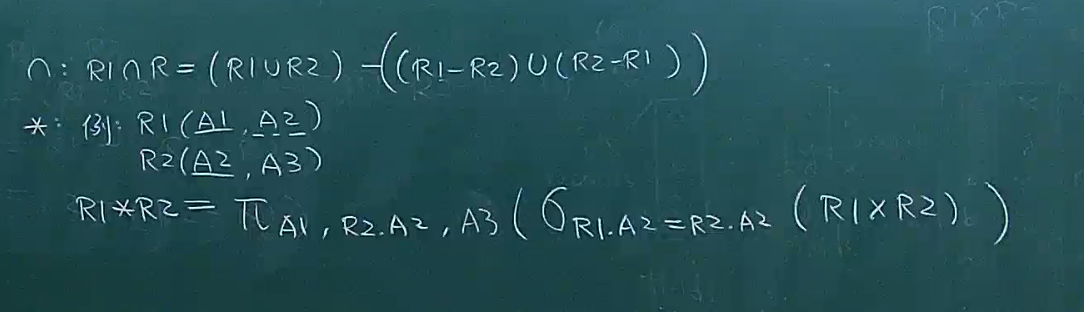 ∩: R1∩R=(R1∪R2)-((R1-R2)∪(R2-R1))
*: 例: R1(A1,A2)
R2(A2,A3)
R1*R2=π A1,R2.A2,A3(σ R1.A2=R2.A2(R1×R2))